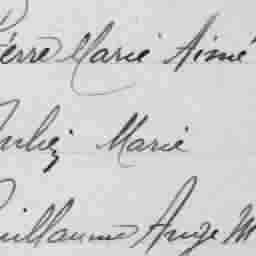 Pierre Marie Aimé
Julien Marie
Guillaume Ange M